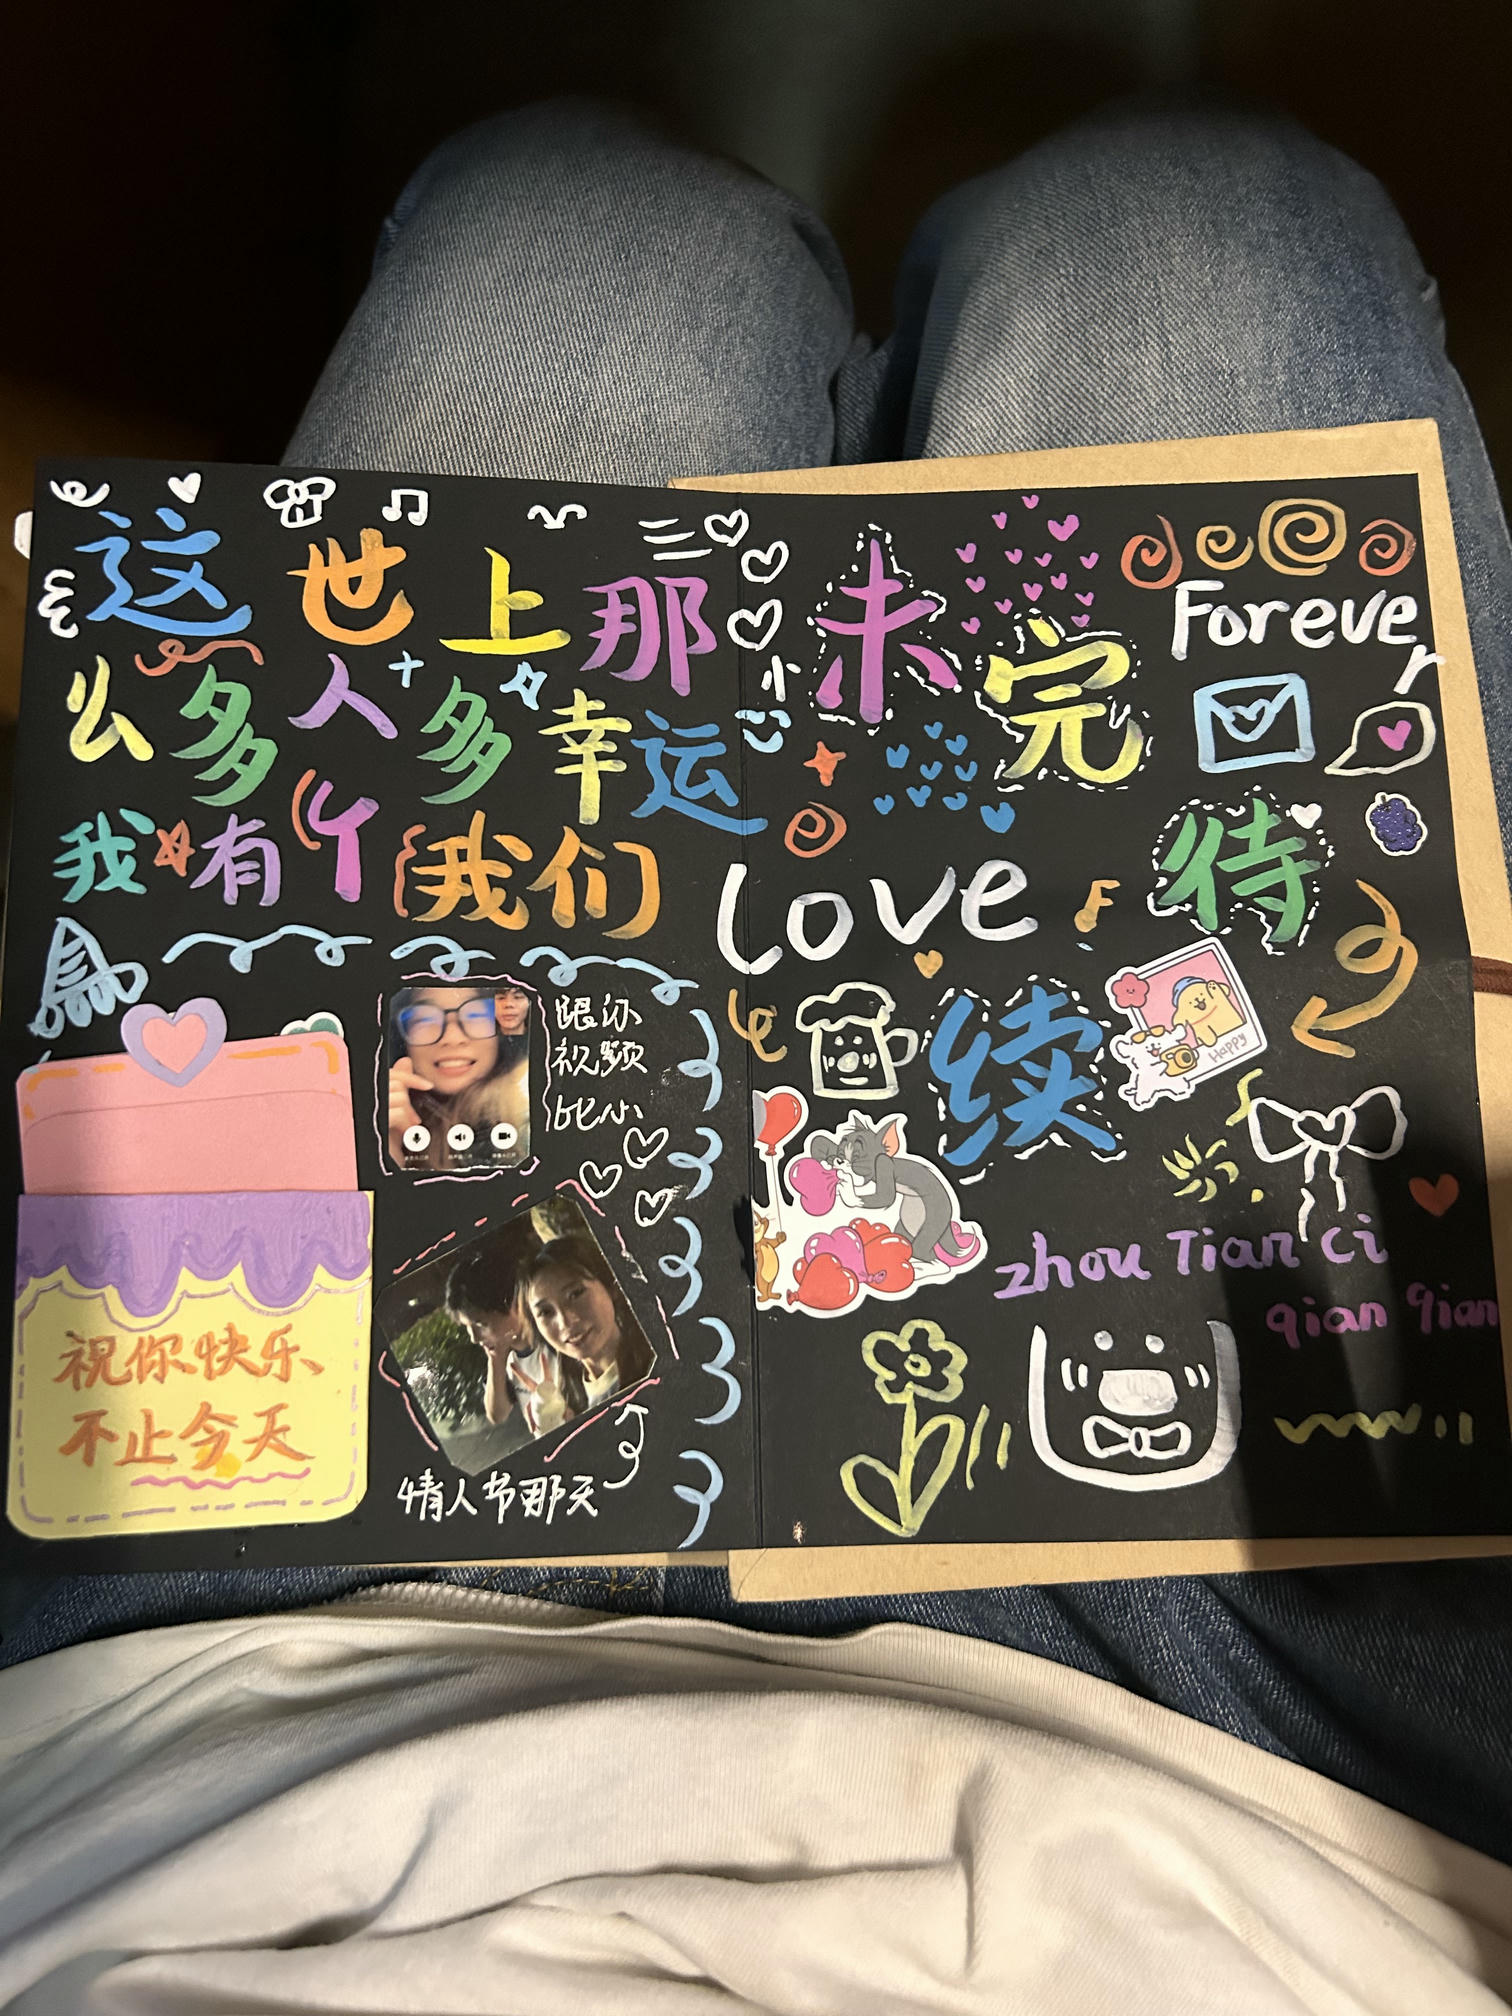 这世上那
么多人多幸运
我有个{我们}
跟你
视频
比心
情人节那天
祝你快乐
不止今天
未完
待
续
Forever
Love
Happy
zhou Tian Ci
qian qian